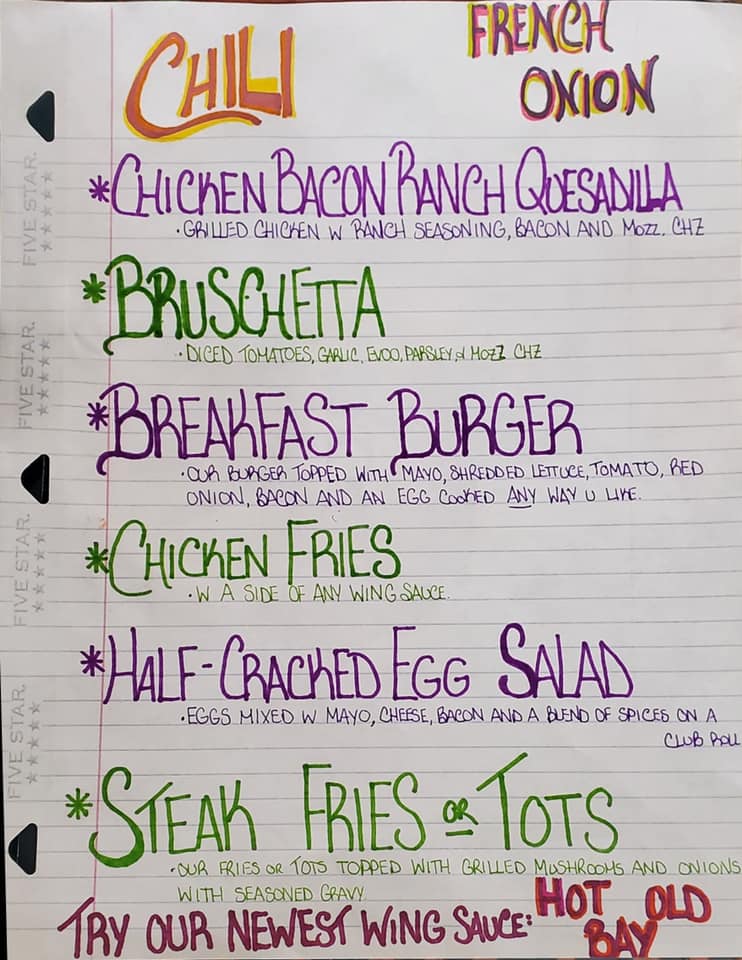 CHILI
FRENCH
ONION
*CHICKEN BACON RANCH QUESADILLA
·GRILLED CHICKEN W RANCH SEASONING, BACON AND MOZZ. CHZ
*BRUSCHETTA
·DICED TOMATOES, GARLIC, EVOO, PARSLEY, & MOZZ CHZ
*BREAKFAST BURGER
·OUR BURGER TOPPED WITH MAYO, SHREDDED LETTUCE, TOMATO, RED
ONION, BACON AND AN EGG COOKED ANY WAY U LIKE.
*CHICKEN FRIES
·W A SIDE OF ANY WING SAUCE.
*HALF-CRACKED EGG SALAD
·EGGS MIXED W MAYO, CHEESE, BACON AND A BLEND OF SPICES ON A
CLUB ROLL
*STEAK FRIES OR TOTS
·OUR FRIES OR TOTS TOPPED WITH GRILLED MUSHROOMS AND ONIONS
WITH SEASONED GRAVY.
TRY OUR NEWEST WING SAUCE: HOT OLD
BAY
FIVE STAR.
FIVE STAR.
FIVE STAR.
FIVE STAR.